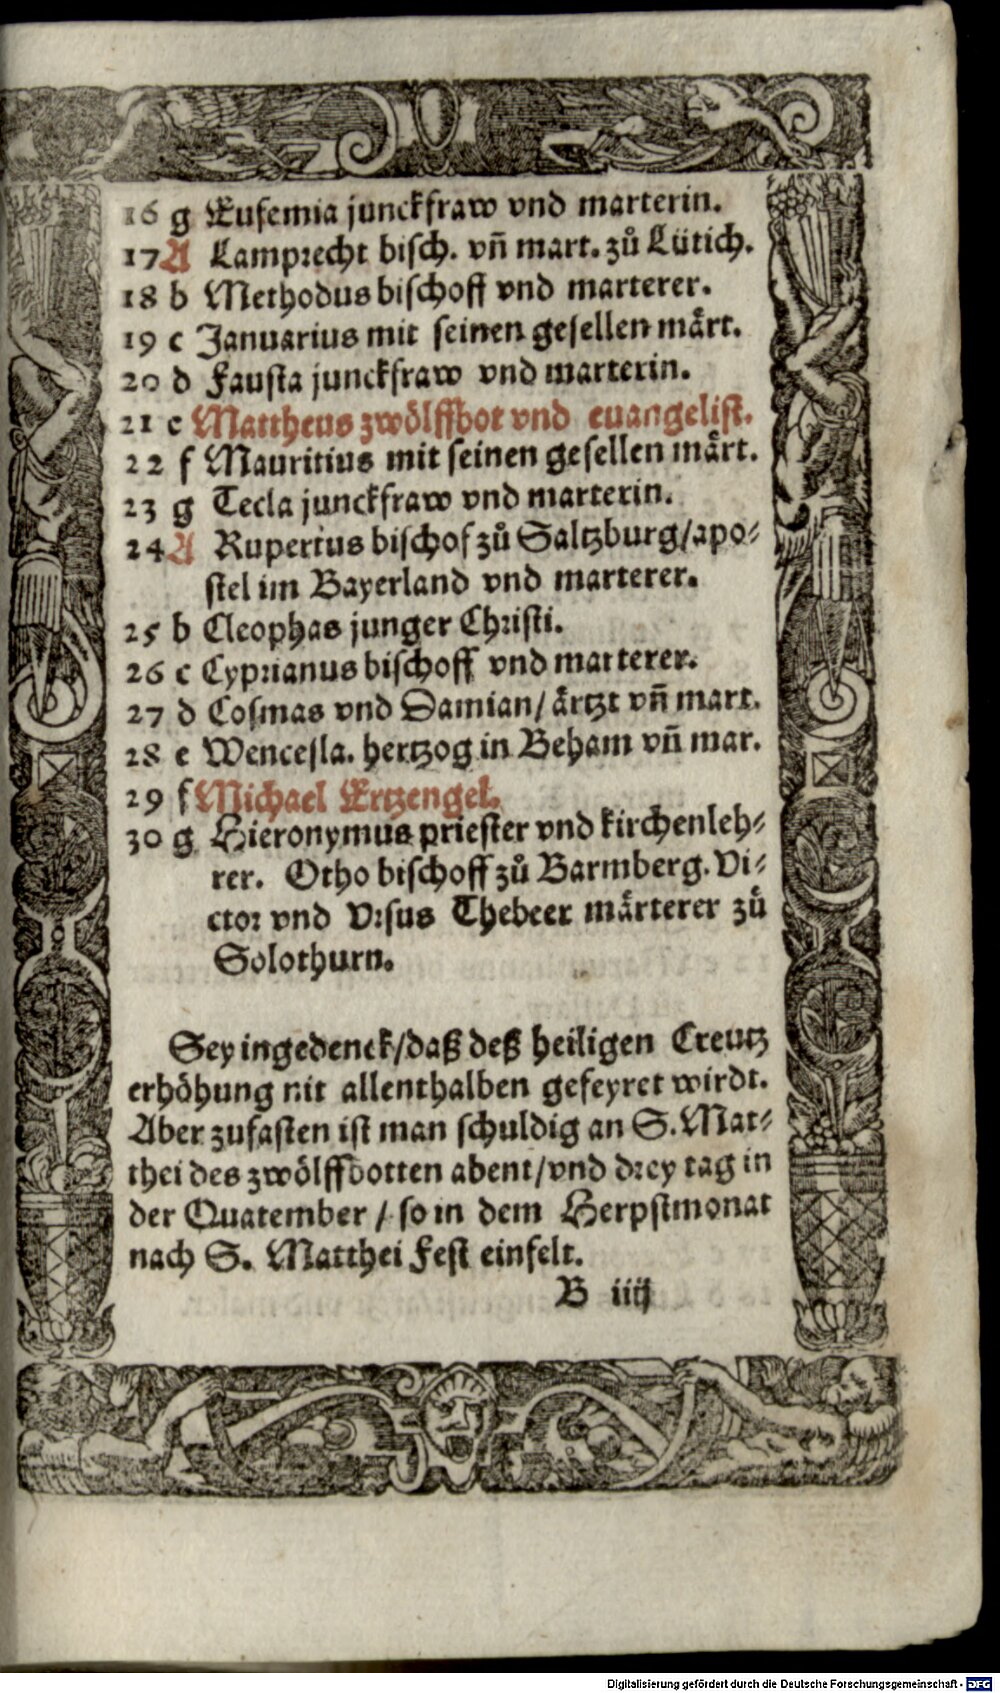 16 g Eufemia junckfraw vnd marterin.
17 A Lamprecht bisch. vñ mart. zů Lütich.
18 b Methodus bischoff vnd marterer.
19 c Januarius mit seinen gesellen märt.
20 d Fausta junckfraw vnd marterin.
21 c Mattheus zwölffbot vnd euangelist.
22 f Mauritius mit seinen gesellen märt.
23 g Tecla junckfraw vnd marterin.
24 A Rupertus bischof zů Saltzburg/apo-
stel im Bayerland vnd marterer.
25 b Cleophas junger Christi.
26 c Cyprianus bischoff vnd marterer.
27 d Cosmas vnd Damian/ ärtzt vñ mart.
28 e Wencesla. hertzog in Beham vñ mar.
29 f Michael Ertzengel.
30 g Hieronymus priester vnd kirchenleh-
rer. Otho bischoff zů Barmberg. Vi-
ctor vnd Vrsus Thebeer märterer zů
Solothurn.
Sey ingedenck/daß deß heiligen Creutz
erhöhung nit allenthalben gefeyret wirdt.
Aber zufasten ist man schuldig an S. Mat-
thei des zwölffbotten abent/vnd drey tag in
der Quatember / so in dem Herpstmonat
nach S. Matthei Fest einfelt.
B iiij
Digitalisierung gefördert durch die Deutsche Forschungsgemeinschaft - DFG